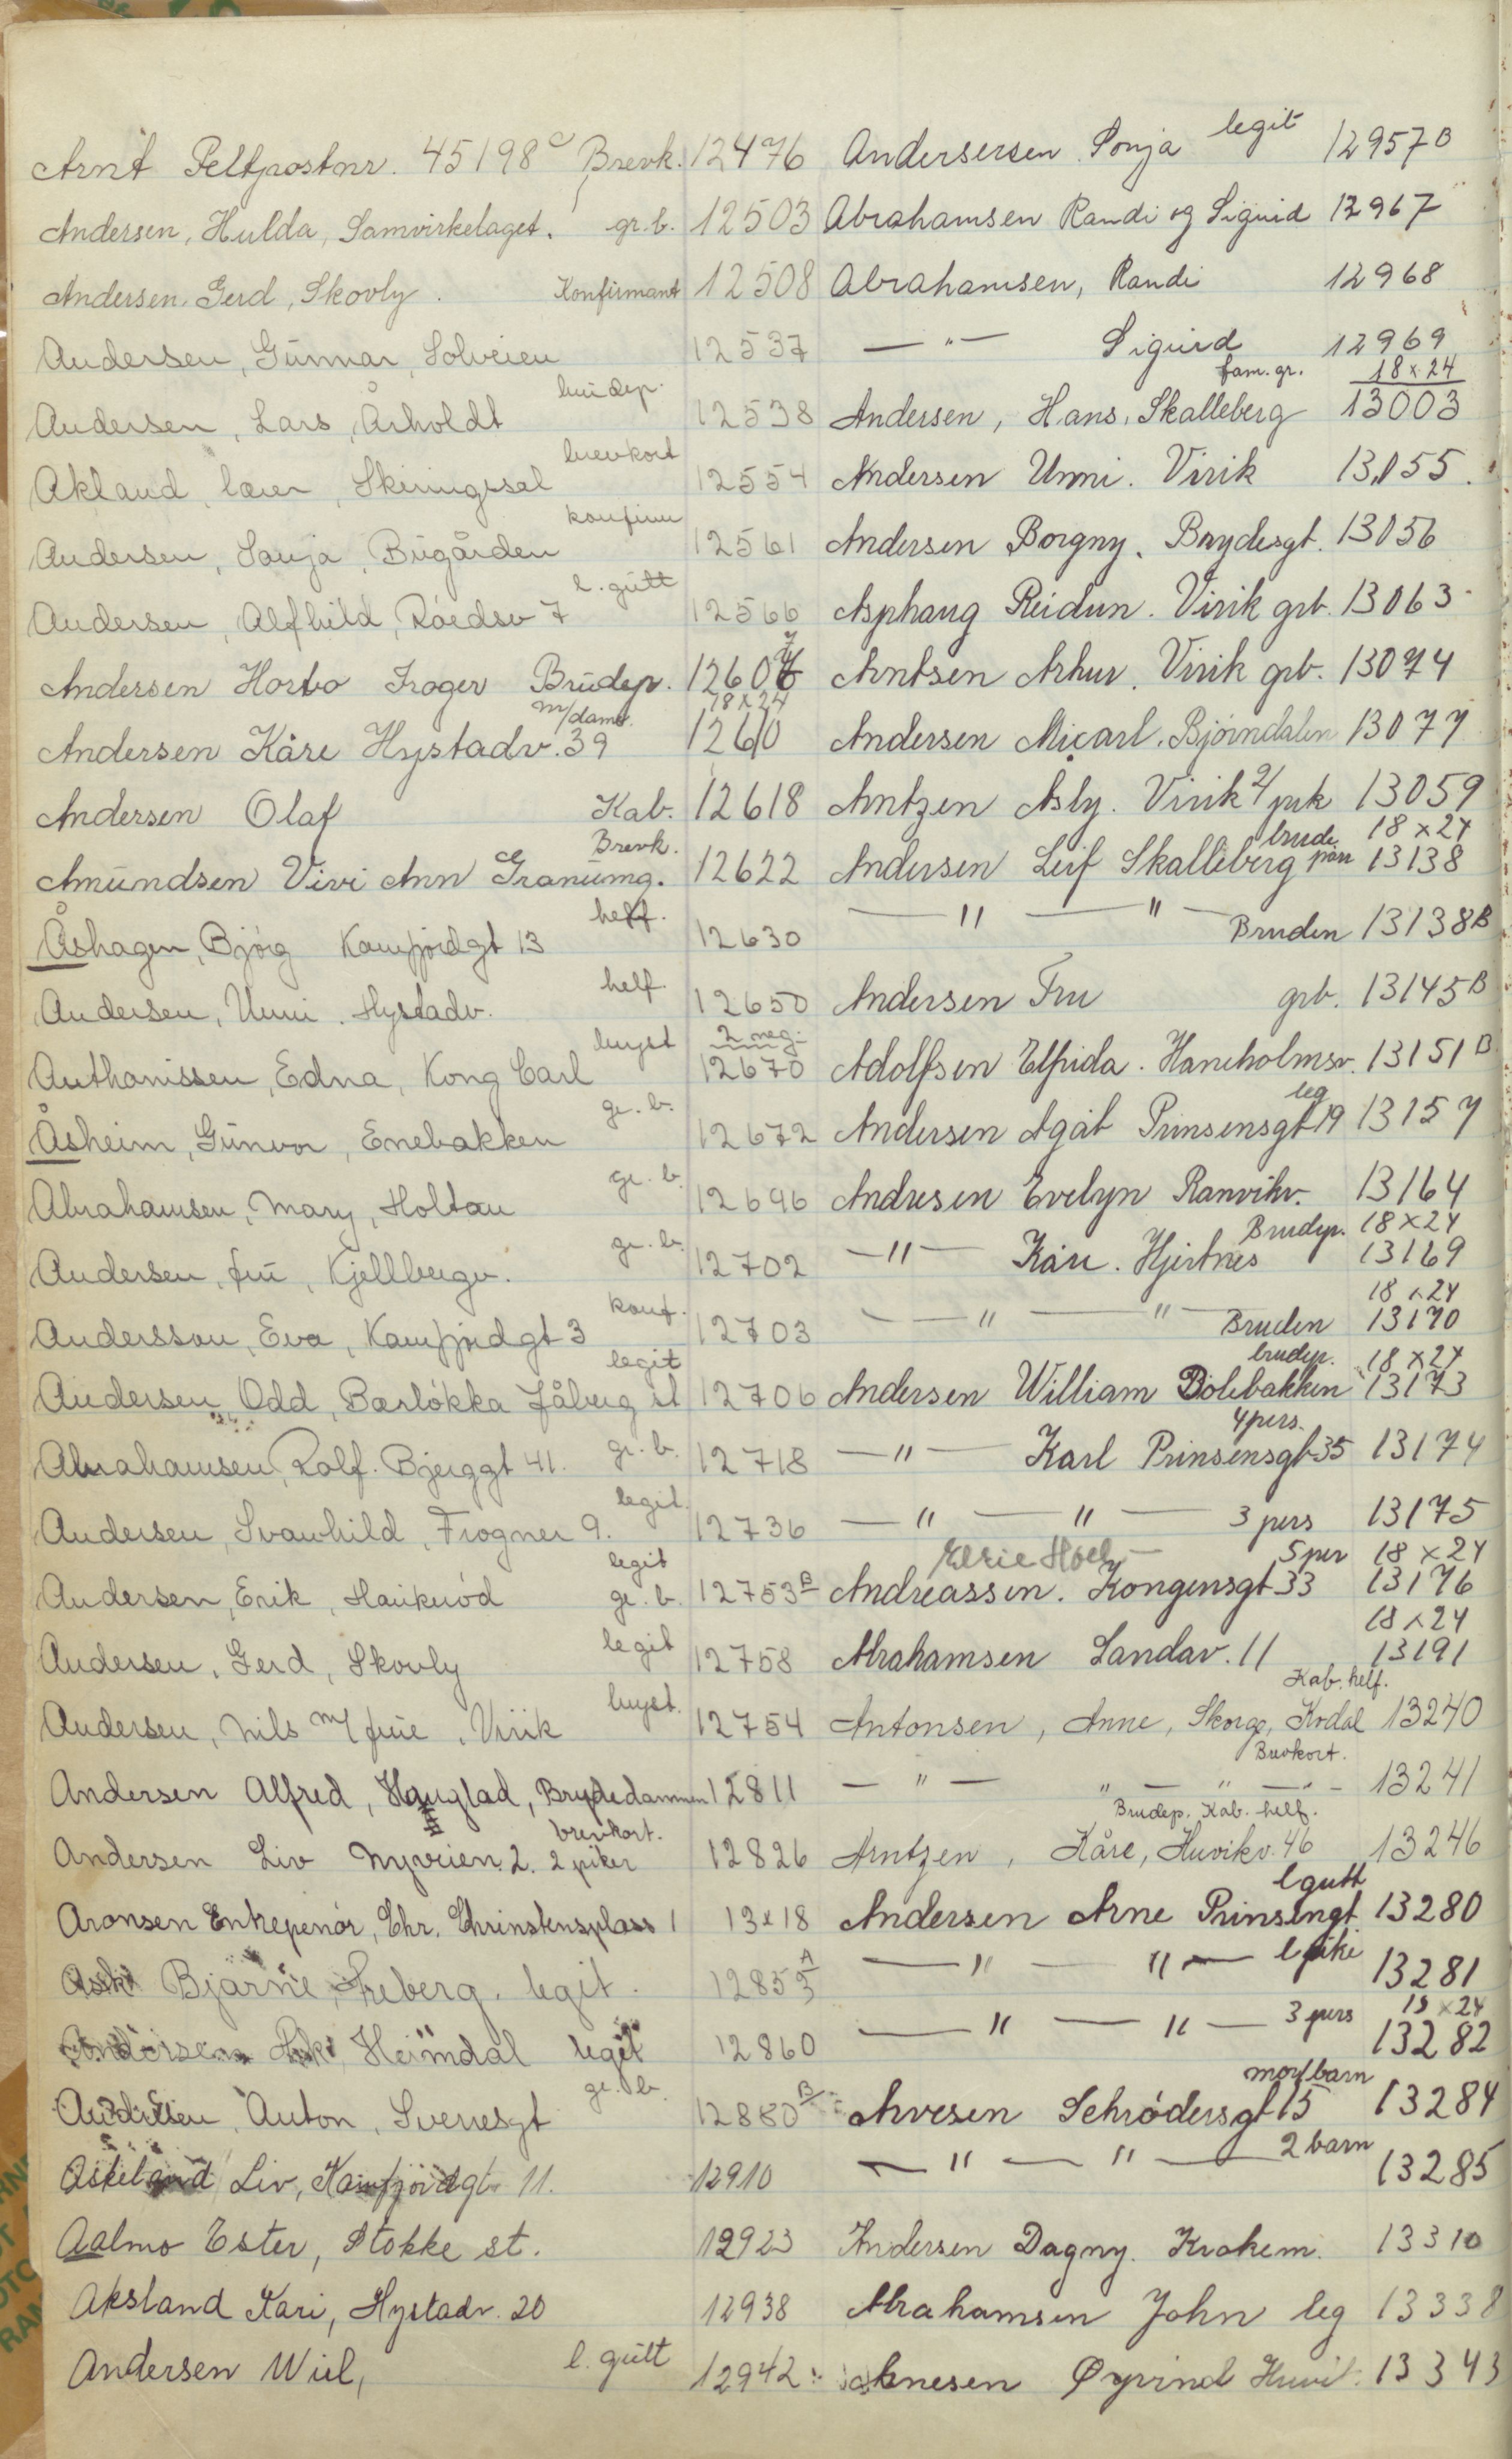 Arnt Feltpostnr. 45198 c Brevk. 12476
Andersen, Hulda, Samvirkelaget. gr.b. 12503
Andersen, Gerd, Skovly. Konfirmant 12508
Andersen, Gunnar, Solveien 12537
Andersen, Lars, Årholdt brudep. 12538
Akland, lærer, Skiringssal brevkort 12554
Andersen, Sonja, Bugården konfirm 12561
Andersen, Alfhild, Råedsv 7 l. gutt 12566
Andersen Horbo Iroger Brudep. 12607
18x24
Andersen Kåre Hystadv. 39 m/dame. 12610
Andersen Olaf Kab. 12618
Amundsen Vivi Ann Granumg. Brevk. 12622
Åshagen, Bjørg Kamfjordgt 13 helf. 12630
Andersen, Unni. Hystadv. helf. 12650
2 neg.
Anthonissen, Edna, Kong Carl bryst 12670
Åsheim, Gunvor, Enebakken gr. b. 12672
Abrahamsen, Mary, Holtan gr. b. 12696
Andersen, fru, Kjellbergv. gr. b. 12702
Andersson, Eva, Kamfjordgt 3 konf. 12703
Andersen, Odd, Bærløkka Fåberg st legit 12706
Abrahamsen, Rolf. Bjerggt 41. gr. b. 12718
Andersen, Svanhild, Frogner 9. legit. 12736
Andersen, Erik, Haukerød legit gr. b. 12753 B
Andersen, Gerd, Skovly legit 12758
Andersen, Nils m/ frue, Virik bryst. 12754
Andersen Alfred, Hauglad, Brydedammen 12811
Andersen Liv Nyveien 2. 2 piker brevkort. 12826
Aronsen Enkepenør, Chr. Christensplass 1 13x18
Bjarne, Freberg. legit. 12853 A
Heimdal legit 12860
Anton, Sverresgt gr. b. 12880 B
Askeland Liv, Kamfjordgt 11. 12910
Aalmo Ester, Stokke st. 12923
Aksland Kari, Hystadv. 20 12938
Andersen Wiel, l. gutt 12942
Andersersen Sonja legit 12957 B
Abrahamsen Randi og Sigurd 12967
Abrahamsen, Randi 12968
— " — Sigurd 12969
fam. gr. 18x24
Andersen, Hans, Skalleberg 13003
Andersen Unni. Virik 13055.
Andersen Borgny. Brydesgt. 13056
Asphaug Reidun. Virik grb. 13063
Arntsen Arhur. Virik grb. 13074
Andersen Micarl. Bjørndalen 13077
Arntzen Asly. Virik 2/ prk 13059
brude 18x24
Andersen Leif Skalleberg par 13138
— " — " — Bruden 13138 B
Andersen Fru grb. 13145 B
Adolfsen Elfrida. Haneholmsv. 13151 B
leg
Andersen Agat Prinsensgt 19 13157
Andresen Evelyn Ranvikv. 13164
Brudep. 18x24
— " — Kåre. Hjertnes 13169
18x24
— " — " — Bruden 13170
brudep. 18x24
Andersen William Dølebakken 13173
4 pers.
— " — Karl Prinsensgt 35 13174
— " — " — 3 pers 13175
Elsie Hoel — 5 per 18x24
Andreassen. Kongensgt 33 13176
18x24
Abrahamsen Landav. 11 13191
Kab. helf.
Antonsen, Anne, Skorge, Kodal 13240
Brevkort.
— " — " — " — " — 13241
Brudep. Kab. helf.
Arntzen, Kåre, Huvikv. 46 13246
l gutt
Andersen Arne Prinsengt. 13280
— " — " — l pike 13281
18x24
— " — " — 3 pers 13282
mor/barn
Arvesen Schrødersgt 15 13284
— " — " — 2 barn 13285
Andersen Dagny. Krokem. 13310
Abrahamsen John leg 13338
Øyvind 13343